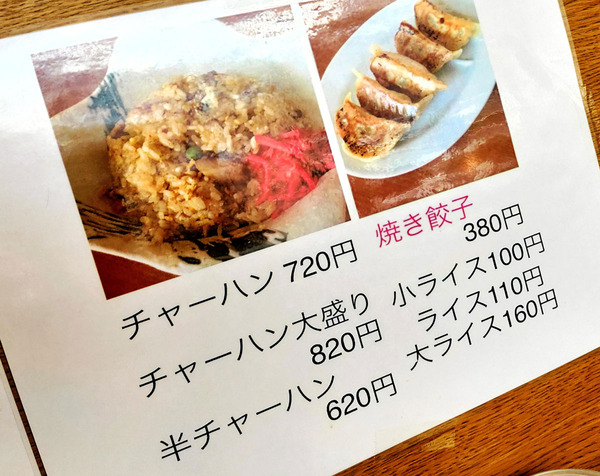 チャーハン 720円
チャーハン大盛り
820円
半チャーハン
620円
焼き餃子
380円
小ライス100円
ライス110円
大ライス160円